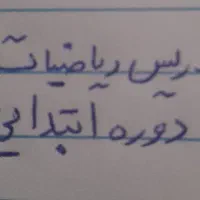 ریس ریاضیات
دوره ابتدایی